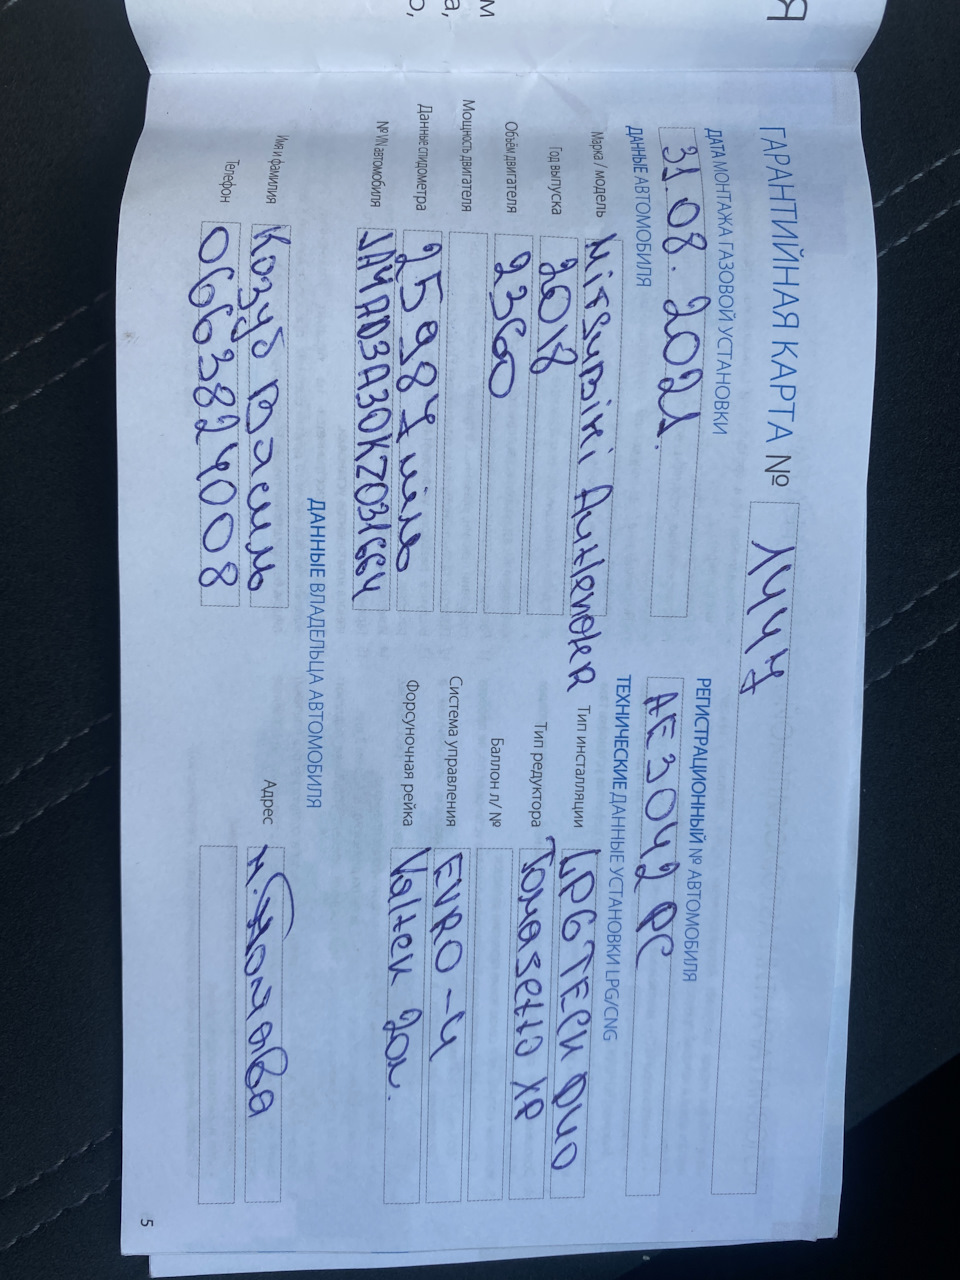 ГАРАНТИЙНАЯ КАРТА № 1447
ДАТА МОНТАЖА ГАЗОВОЙ УСТАНОВКИ
31.08.2021.
РЕГИСТРАЦИОННЫЙ № АВТОМОБИЛЯ
AE3042PC
ДАННЫЕ АВТОМОБИЛЯ
Марка / модель Mitsubihi Autlender
Год выпуска 2018
Объём двигателя 2360
Мощность двигателя
Данные спидометра 25987 миль
№ VIN автомобиля JA4AD3A30KZ031664
ТЕХНИЧЕСКИЕ ДАННЫЕ УСТАНОВКИ LPG/CNG
Тип инсталляции LPGTECH DUO
Тип редуктора Tomasetto XP
Баллон л/ №
Система управления EVRO-4
Форсуночная рейка Valtek
ДАННЫЕ ВЛАДЕЛЬЦА АВТОМОБИЛЯ
Имя и фамилия Козуб Василь
Телефон 0663824008
Адрес
5